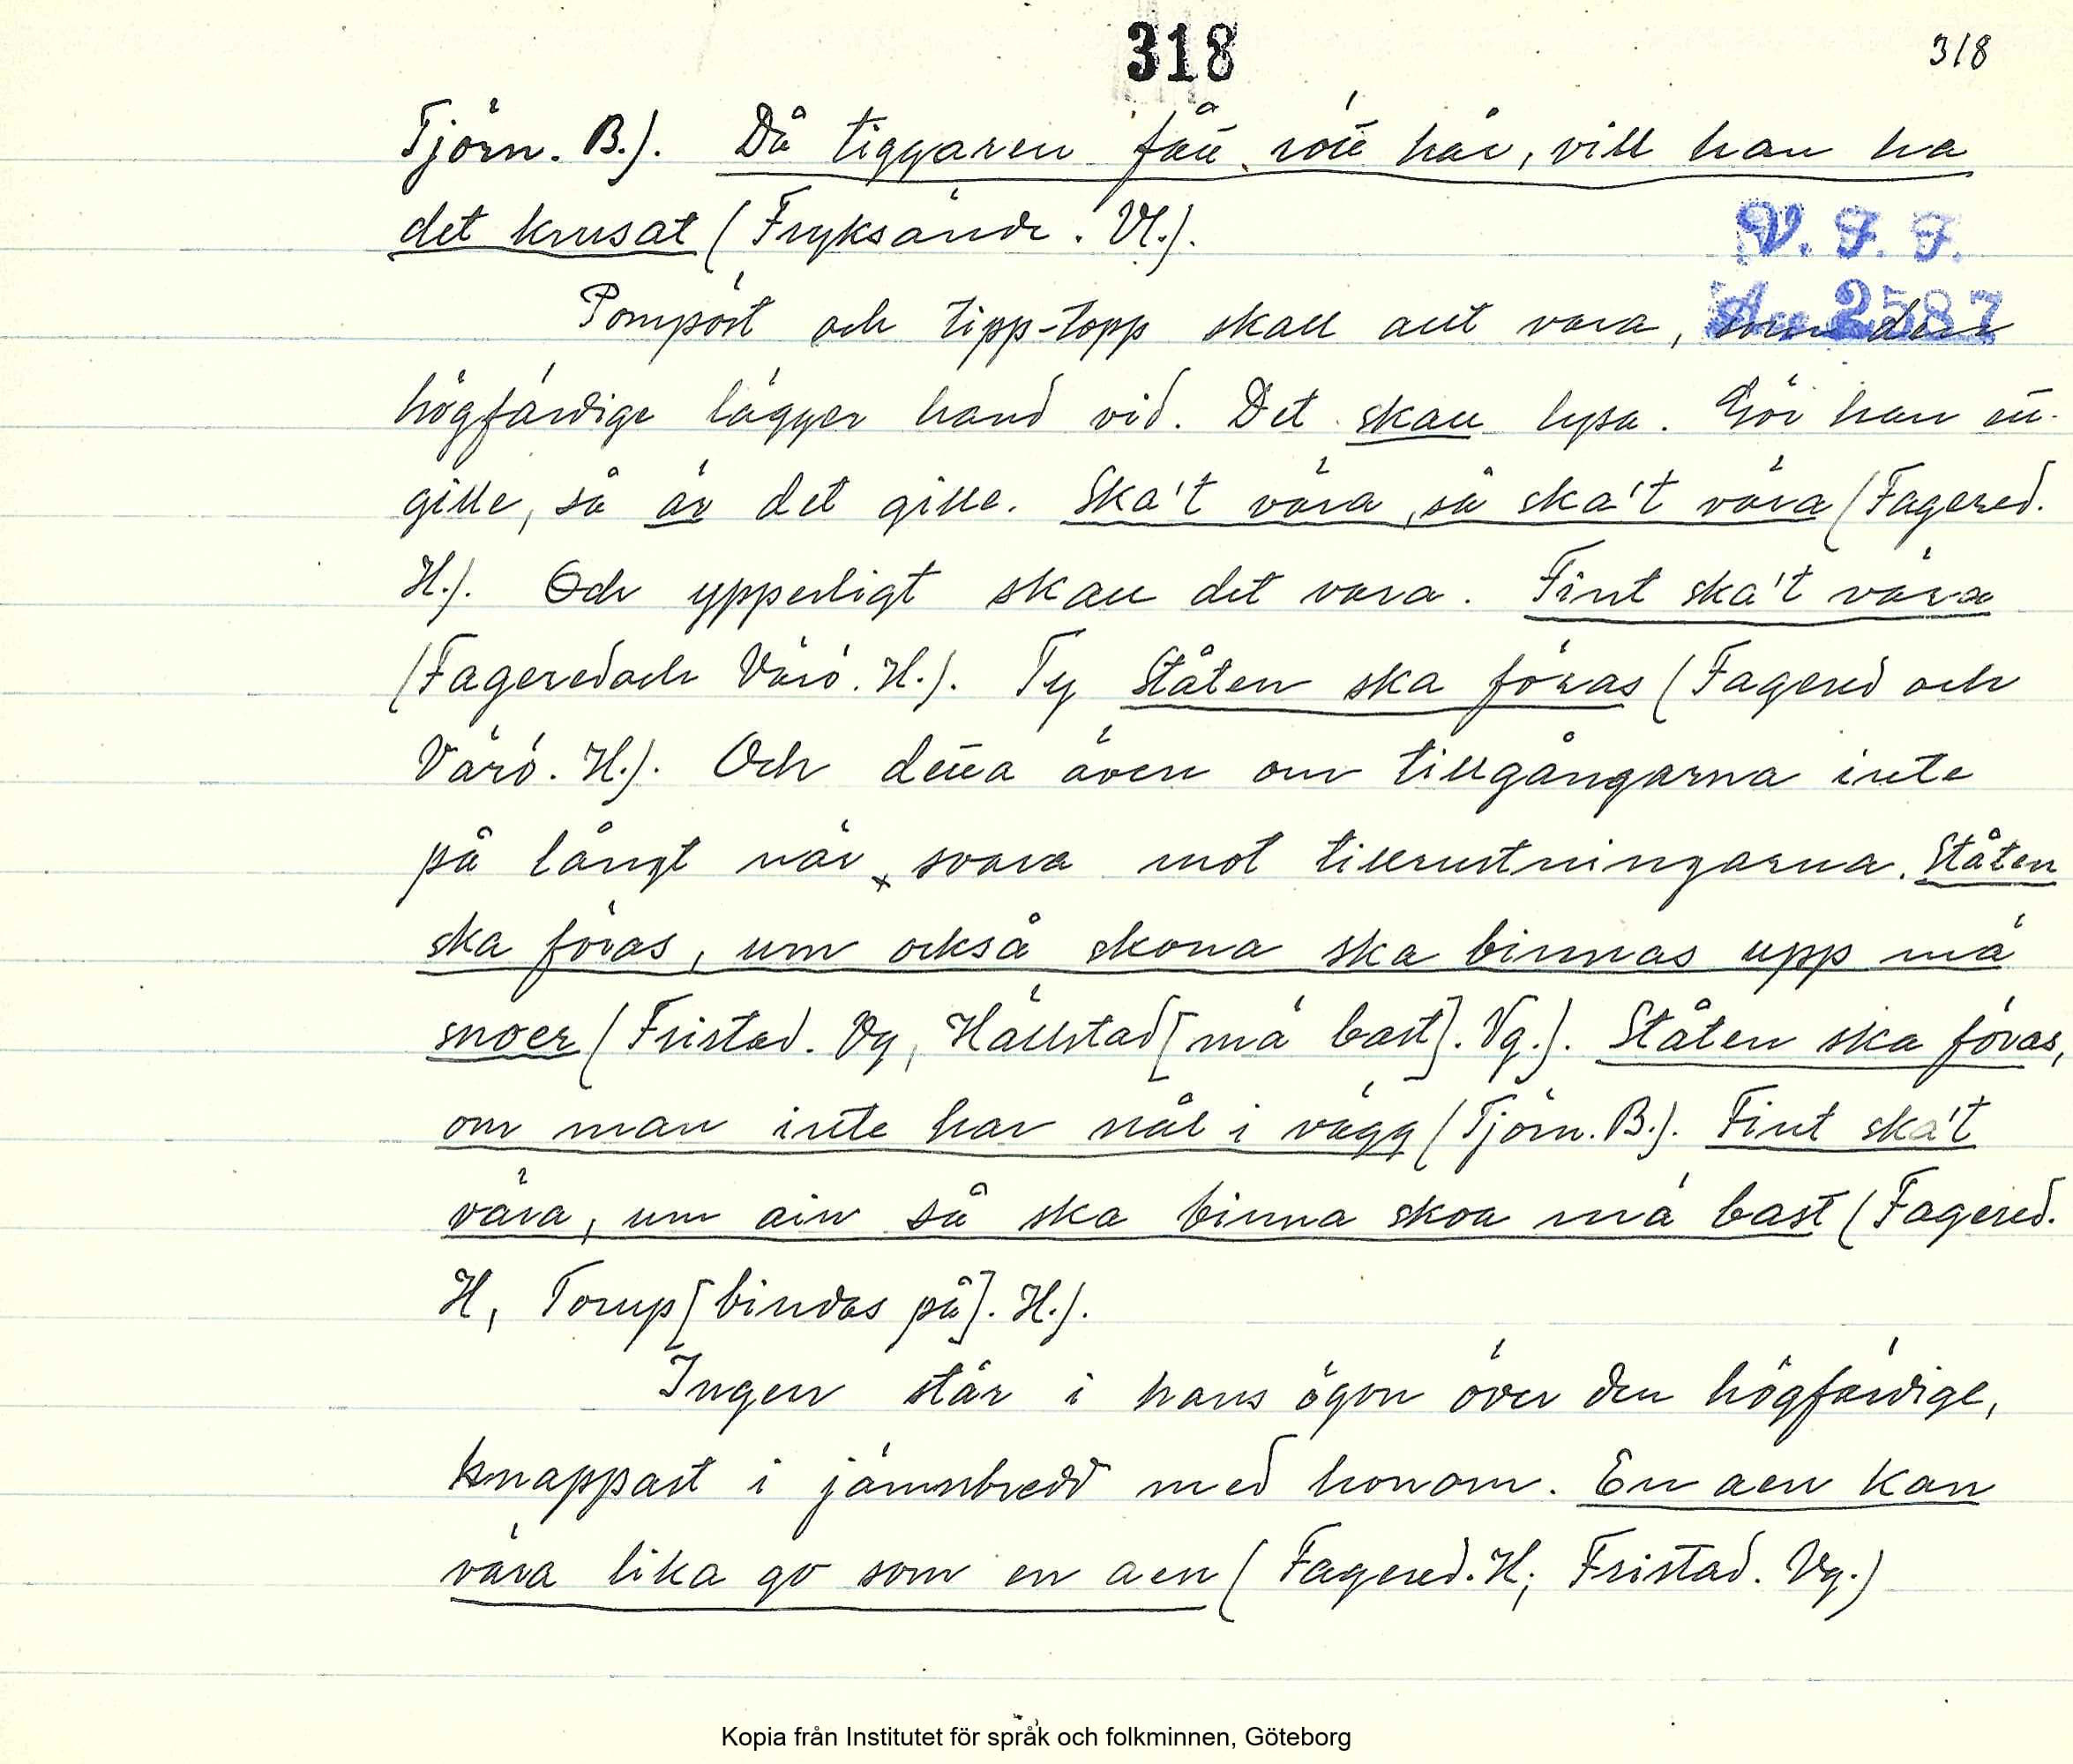 318
318
Tjörn. B.). Då tiggaren fått rött hår, vill han ha
det krusat (Fryksände. Vl.).
V. F. F.
Pompöst och tipp-topp skall allt vara, som den
Acc 2587
högfärdige lägger hand vid. Det skall lysa. Gör han ett
gille, så är det gille. Ska't våra, så ska't våra (Fagered.
H.). Och ypperligt skall det vara. Fint ska't våra
(Fagered och Värö. H.). Ty Ståten ska föras (Fagered och
Värö. H.). Och detta även om tillgångarna inte
på långt när svara mot tillrustningarna. Ståten
ska föras, um också skona ska binnas upp mä
snoer (Fristad. Vg, Hällstad [mä bast]. Vg.). Ståten ska föras,
om man inte har nål i vägg (Tjörn. B.). Fint ska't
våra, um ain så ska binna skoa mä bast (Fagered.
H, Torup [bindas på]. H.).
Ingen står i hans ögon över den högfärdige,
knappast i jämnbredd med honom. En aen kan
våra lika go som en aen (Fagered. H; Fristad. Vg.)
Kopia från Institutet för språk och folkminnen, Göteborg